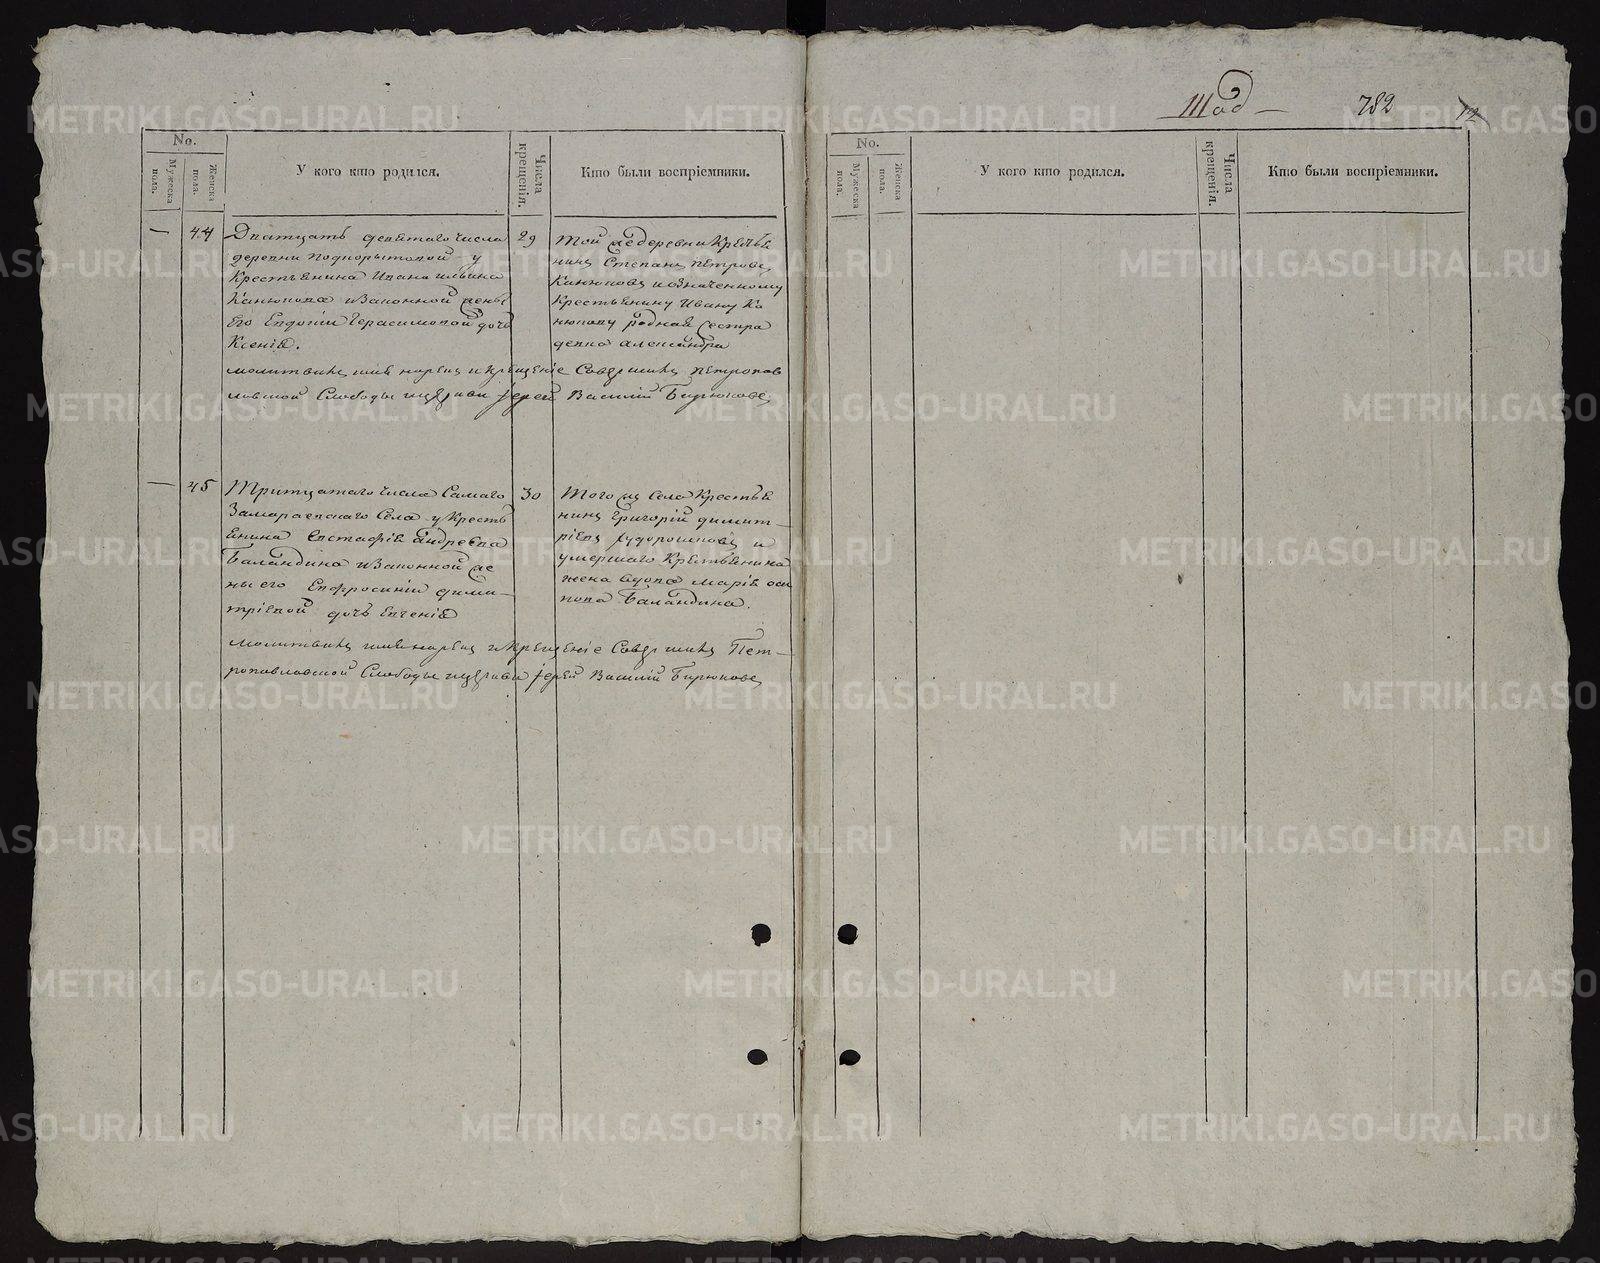 No.
Мужеска пола.
Женска пола.
У кого кто родился.
Числа крещенія.
Кто были воспріемники.
— 44
Дватцать девятаго числа
деревни Подкорытовой у
Крестьянина Ивана Ильина
Канюкова и законной жены
Его Евдокіи Герасимовой дочь
Ксенія.
29
Той же деревни Крестья
нинъ Степанъ Петровъ
Канюковъ и означенному
Крестьянину Ивану Ка
нюкову родная сестра
девка Александра
молитвилъ имя нарекъ и крещеніе Совершилъ Петропав
ловской Слободы церкви Іерей Василій Бирюковъ
— 45
Тритцатаго числа Самаго
Замараевскаго Села у Кресть
янина Евстафія Андреева
Баландина и законной же
ны его Евфросиніи Дими-
тріевой дочь Евгенія
30
Того жъ Села Крестья
нинъ Григорій Димит-
ріевъ и
умершаго Крестьянина
жена вдова Марія Оси
пова Баландина.
молитвилъ имя нарекъ и Крещеніе Совершилъ Пет-
ропавловской Слободы церкви Іерей Василій Бирюковъ
Шад — 782
12
No.
Мужеска пола.
Женска пола.
У кого кто родился.
Числа крещенія.
Кто были воспріемники.
METRIKI.GASO-URAL.RU